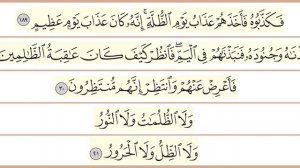 فَكَذَّبُوهُ فَأَخَذَهُمْ عَذَابُ يَوْمِ ٱلظُّلَّةِ ۚ إِنَّهُۥ كَانَ عَذَابَ يَوْمٍ عَظِيمٍ ١٨٩
ـٰهُ وَجُنُودَهُۥ فَنَبَذْنَـٰهُمْ فِى ٱلْيَمِّ ۖ فَٱنظُرْ كَيْفَ كَانَ عَـٰقِبَةُ ٱلظَّـٰلِمِينَ
فَأَعْرِضْ عَنْهُمْ وَٱنتَظِرْ إِنَّهُم مُّنتَظِرُونَ ٣٠
وَلَا ٱلظُّلُمَـٰتُ وَلَا ٱلنُّورُ
وَلَا ٱلظِّلُّ وَلَا ٱلْحَرُورُ ٢١